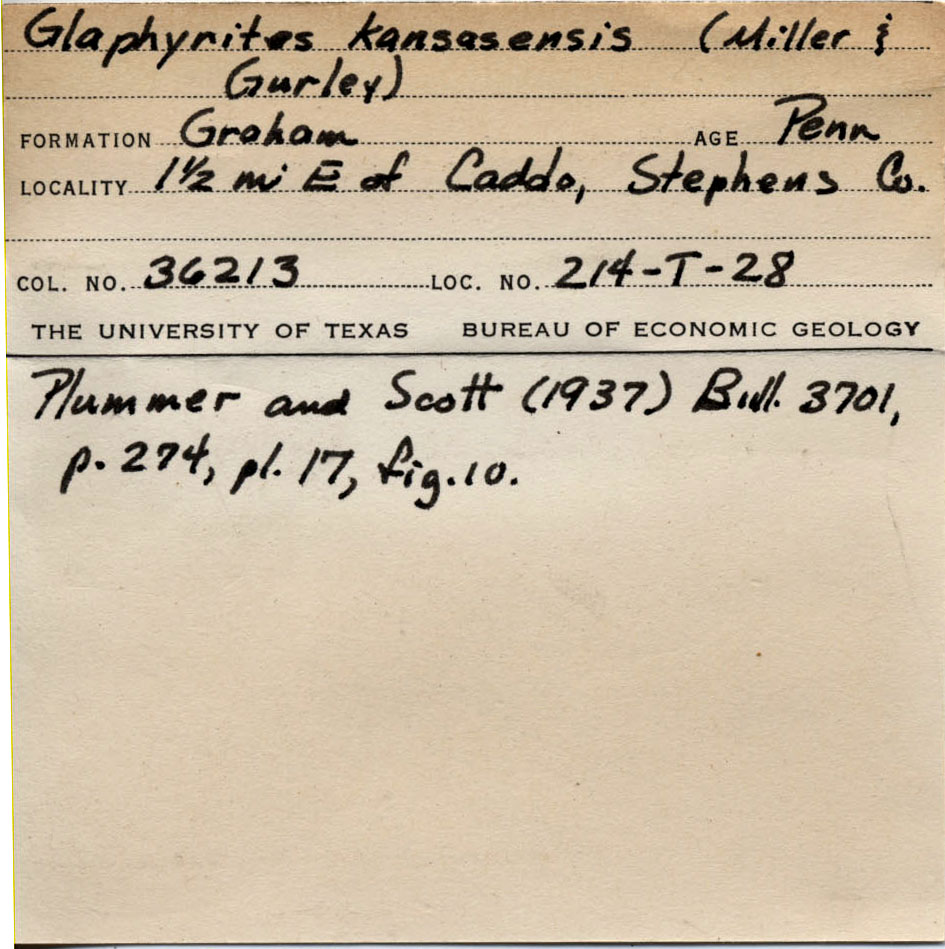 Glaphyrites kansasensis (Miller &
Gurley)
FORMATION Graham AGE Penn
LOCALITY 1½ mi E of Caddo, Stephens Co.
COL. NO. 36213 LOC. NO. 214-T-28
THE UNIVERSITY OF TEXAS BUREAU OF ECONOMIC GEOLOGY
Plummer and Scott (1937) Bull. 3701,
p. 274, pl. 17, fig. 10.